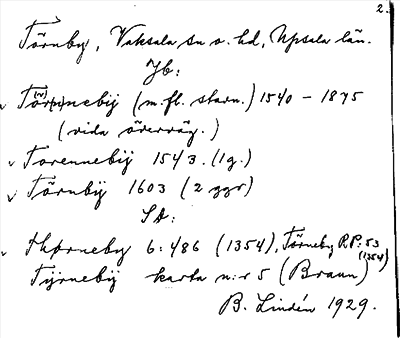 2.
Törnby, Vaksala sn o. hd, Upsala län.
Jb:
v Tör(n)nebÿ (m.fl. stavn.) 1540 – 1875
(vida överväg.)
v Torennebÿ 1543. (1g.)
v Törnbÿ 1603 (2 ggr)
SD:
v Thørneby 6: 486 (1354), Törneby R.P.: 53 (1354)
Tÿrnebÿ karta n:r 5 (Braun)
B. Lindén 1929.